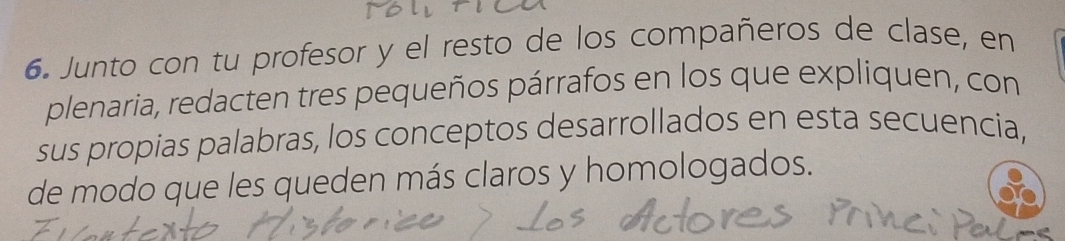 política
6. Junto con tu profesor y el resto de los compañeros de clase, en
plenaria, redacten tres pequeños párrafos en los que expliquen, con
sus propias palabras, los conceptos desarrollados en esta secuencia,
de modo que les queden más claros y homologados.
El contexto Historico, los Actores Principales